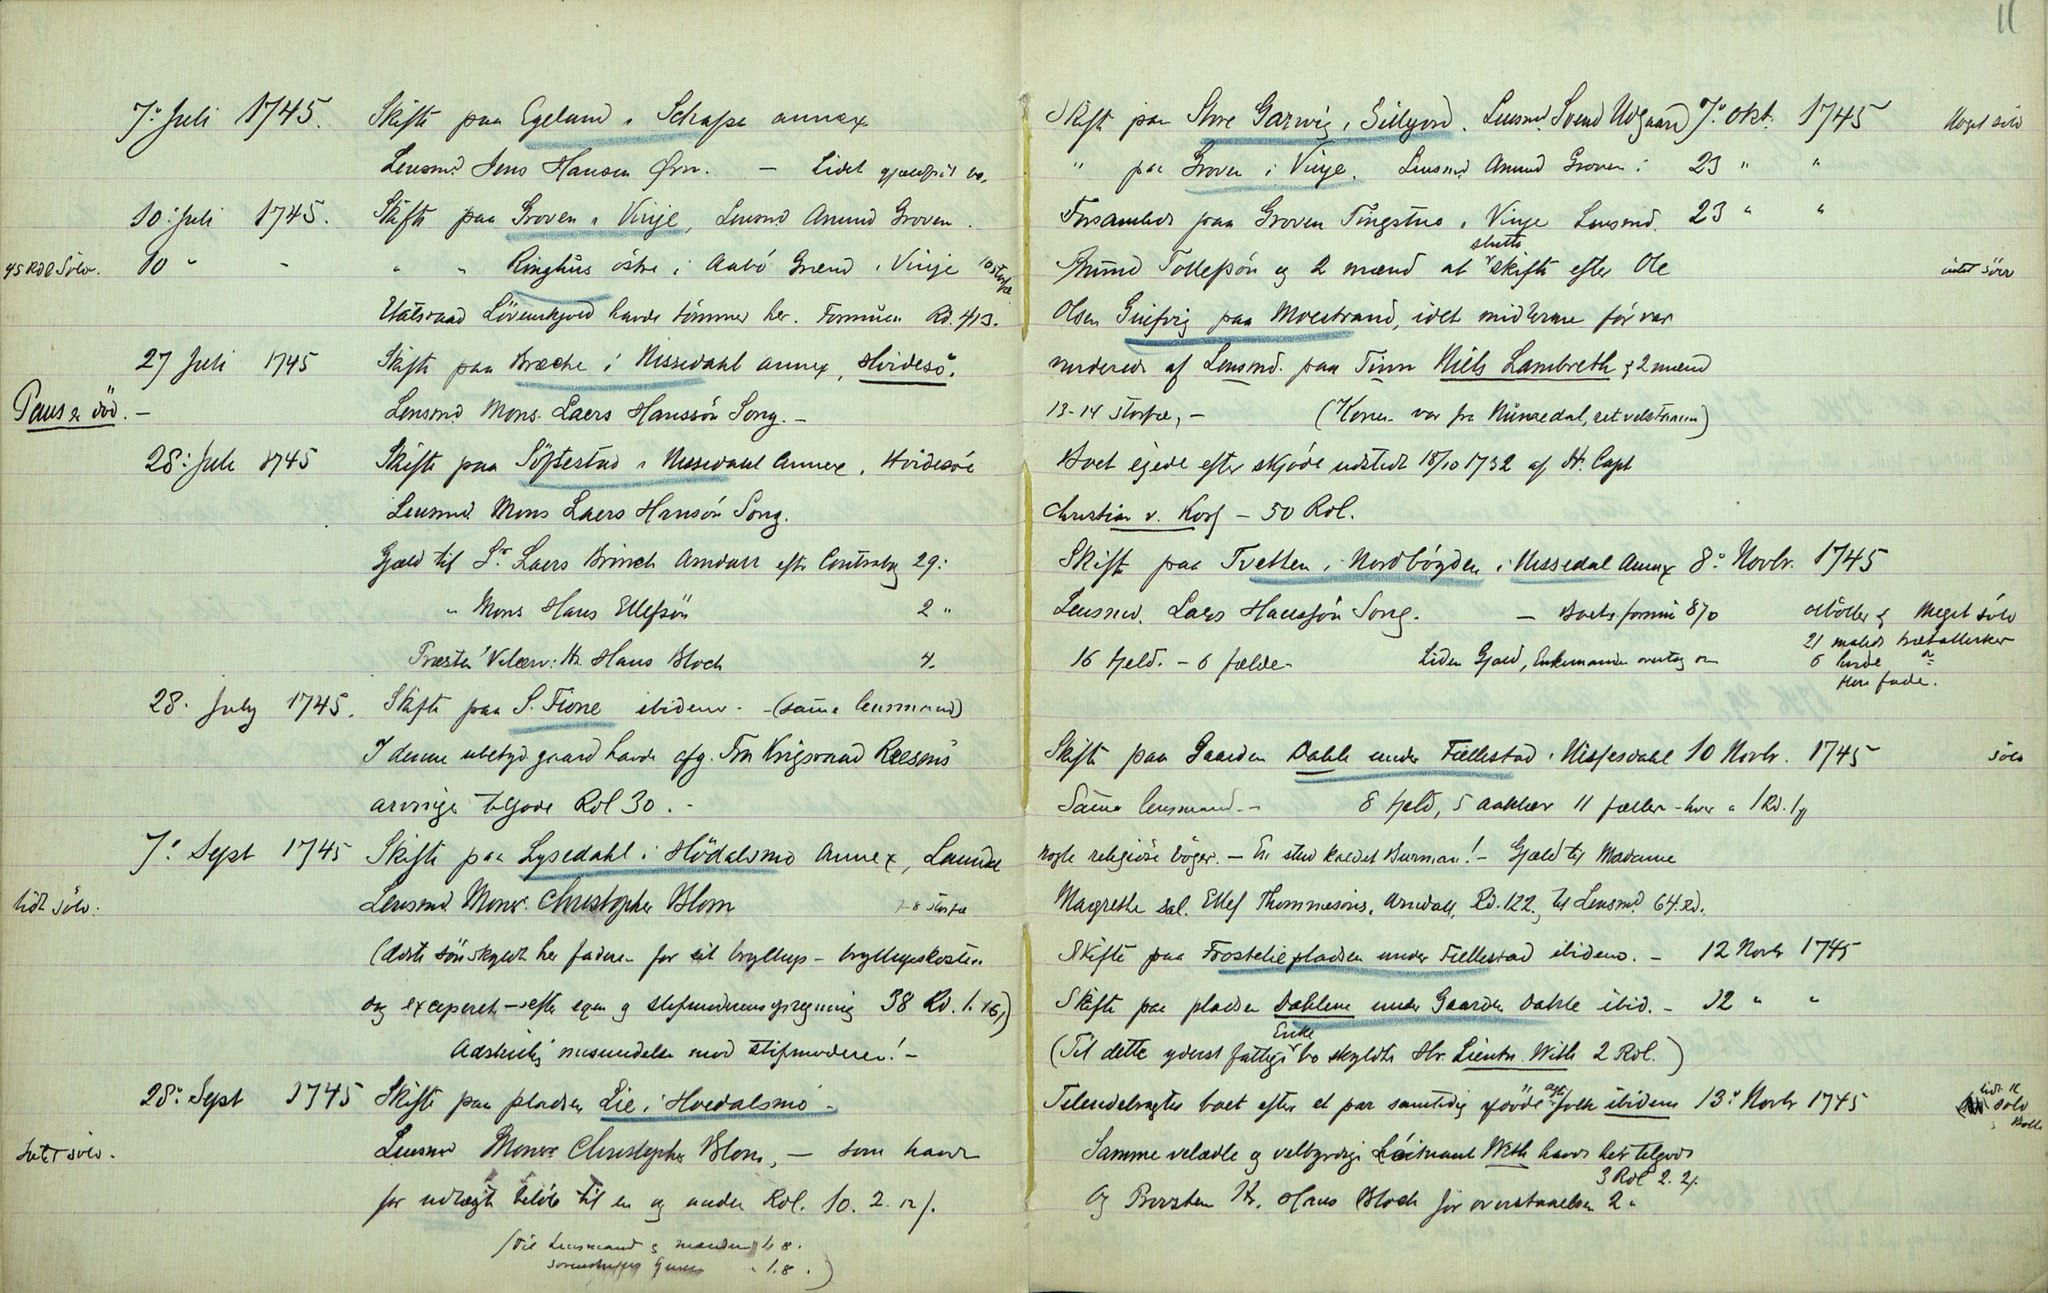 11
7de Juli 1745. Skifte paa Egeland i Schafse annex
Lensmd. Jens Hansen Ørn. — Lidet gjældfrit bo.
10de Juli 1745. Skifte paa Groven i Vinje, Lensmd. Amund Groven.
45 Rdl Sölv. 10 " - " " Ringhus östre i Aabö Grænd i Vinje 10 storfæ
Etatsraad Lövenskjold havde tömmer her. Formuen Rd. 413.
27 Juli 1745 Skifte paa Bræche i Nissedahl annex, Hvidesö.
Paus er död. — Lensmd. Mons. Laers Hanssön Song. —
28de Juli 1745 Skifte paa Söftestad i Nissedahl Annex, Hvidesöe
Lensmd. Mons Laers Hansön Song.
Gjæld til Sr. Laers Brinch Arndall efter Contrabog 29:
" Mons Hans Ellefsön 2 "
Præsten Velærv: Hr. Hans Bloch 4.
28. July 1745. Skifte paa S. Fione ibidem. - (samme lensmand)
I denne ubetyd. gaard havde afg. Fru Krigsraad Reesens
arvinger tilgode Rdl 30. -
7de Sept 1745 Skifte paa Lysedahl i Hödalsmo Annex, Laurdal
lidt sölv. Lensmd. Monsr. Christopher Blom 7-8 storfæ
(ældste sön skyldte her faderen for sit bryllup - bryllupskosten
og exceperet - efter egen og stefmoderens opregning 38 Rd. 1. 16,)
Adskillig misundelse mod stifmoderen! -
28de Sept 1745 Skifte paa pladsen Lie i Hvedalsmo -
intet sölv. Lensmd Monsr Christopher Blom, — som havde
for udlagte beløb til en og anden Rdl. 10. 2. 12 /.
(Til Lensmand & mændene 4. 8.
1.8.)
Skifte paa Store Garvig i Sillejord. Lensmd. Svend Udgaard 7de Okt. 1745 Noget sölv
" paa Groven i Vinje. Lensmd. Amund Groven: 23 " "
Forsamlede paa Groven Tingstue i Vinje Lensmd. 23 " "
Amund Tollefsön og 2 mænd at slutte skifte efter Ole intet sörv
Olsen Guifvig paa Moestrand, idet midlerne för var
vurderede af Lensmd. paa Tinn Niels Lambreth & 2 mænd
13-14 storfæ, - (Konen var fra Numedal, ret velstaaende)
Boet ejede efter skjöde udstedt 18/10 1732 af Hr. Capt
Christian v. Korf - 50 Rdl.
Skifte paa Tvetten i Nordbögden i Nissedal Annex 8de Novbr. 1745
Lensmd. Laers Hanssön Song. — Boets formue 870 Meget sölv
16 feld. - 6 fælder Liden Gjæld, Enkemanden overtog
21 malede trætallerker
6 hvide
flere fade.
Skifte paa Gaarden Dahle under Fiellestad i Nissedahl 10 Novbr. 1745 sölv
Samme lensmand. — 8 feld, 5 aaklær 11 fæller - hver à 1 Rd. 1
nogle religiöse böger. - En stud kaldet Burman! - Gjæld til Madame
Margrethe sal. Ellef Thommesöns, Arndall, Rd. 122, til Lensmd. 64 Rd.
Skifte paa Frostelie pladsen under Fiellestad ibidem. - 12 Novbr 1745
Skifte paa pladsen Dahlene under Gaarden Dahle ibid. - 12 " "
(Til dette yderst fattige Enke bo skyldte Hr. Lieutn. With 2 Rdl.)
Telendelagtes boet efter et par samtidig døde ægtefolk ibidem 13de Novbr 1745 lidt sölv
Samme velædle og velbyrdige Löitnant With havde her tilgode
3 Rdl 2. 2/.
Og Præsten Hr. Hans Bloch for overstaaelsen 2 "